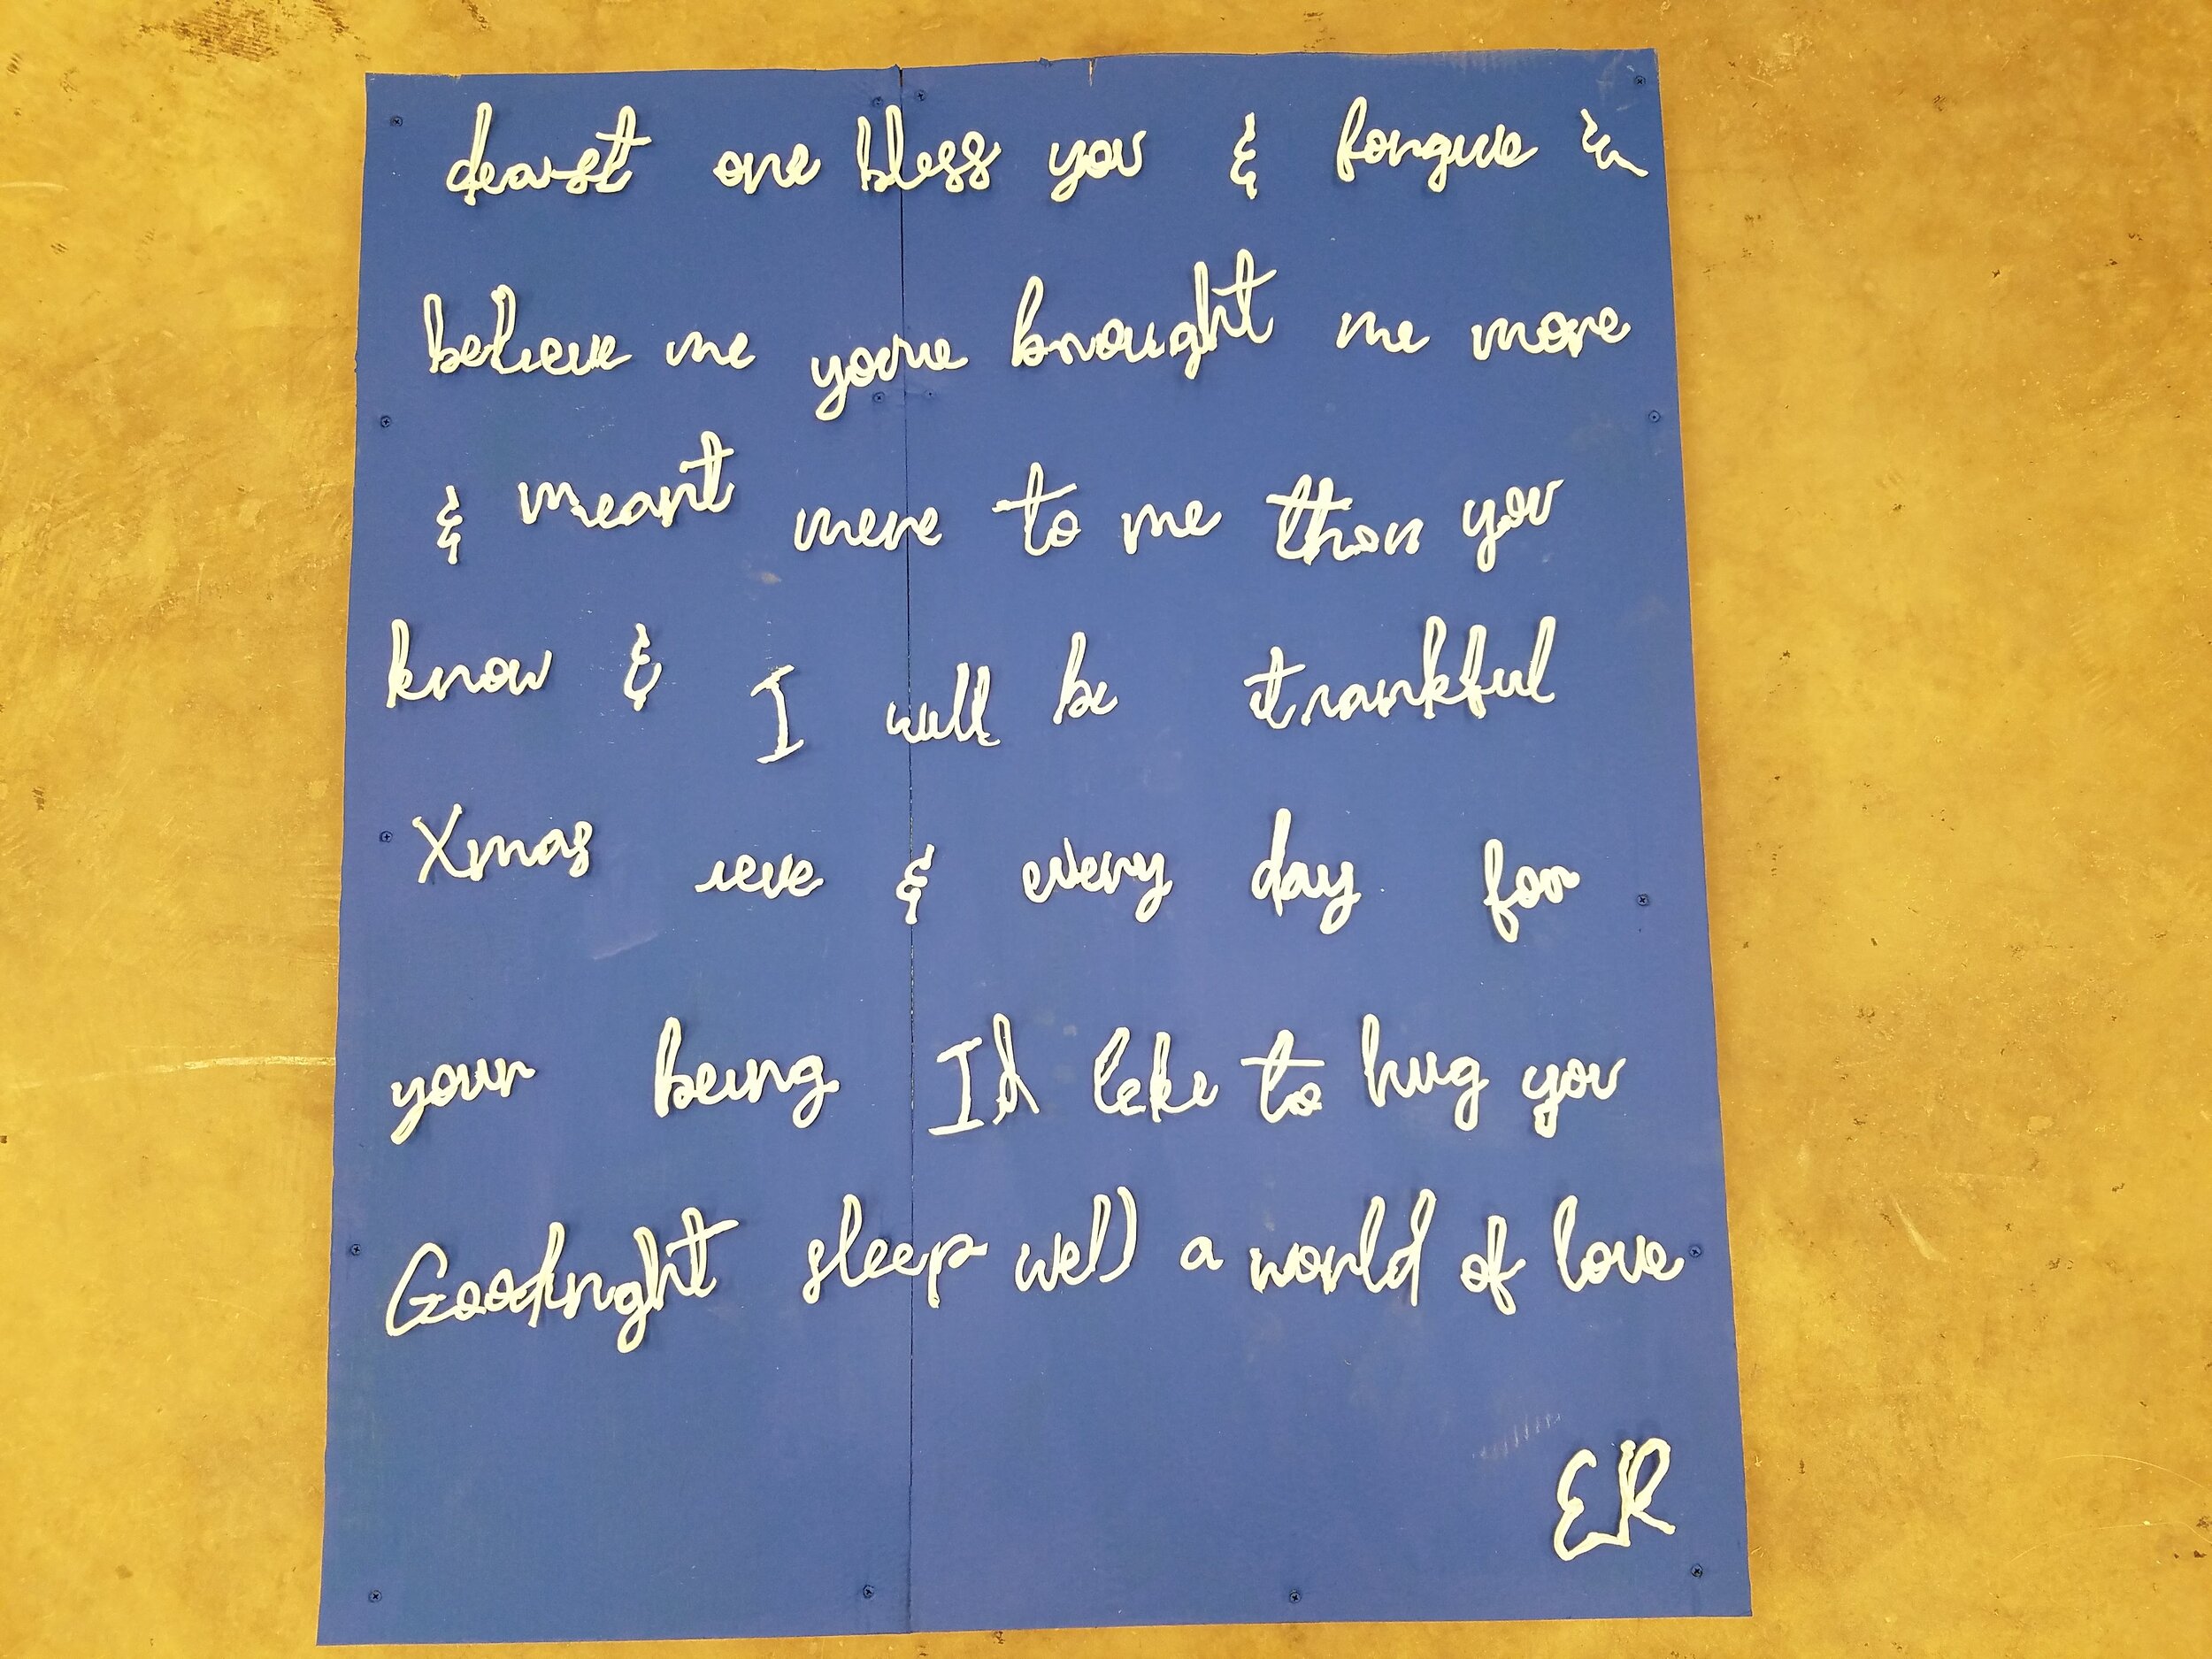 dearest one bless you & forgive &
believe me you've brought me more
& meant more to me than you
know & I will be thankful
Xmas eve & every day for
your being I'd like to hug you
Goodnight sleep well a world of love
ER